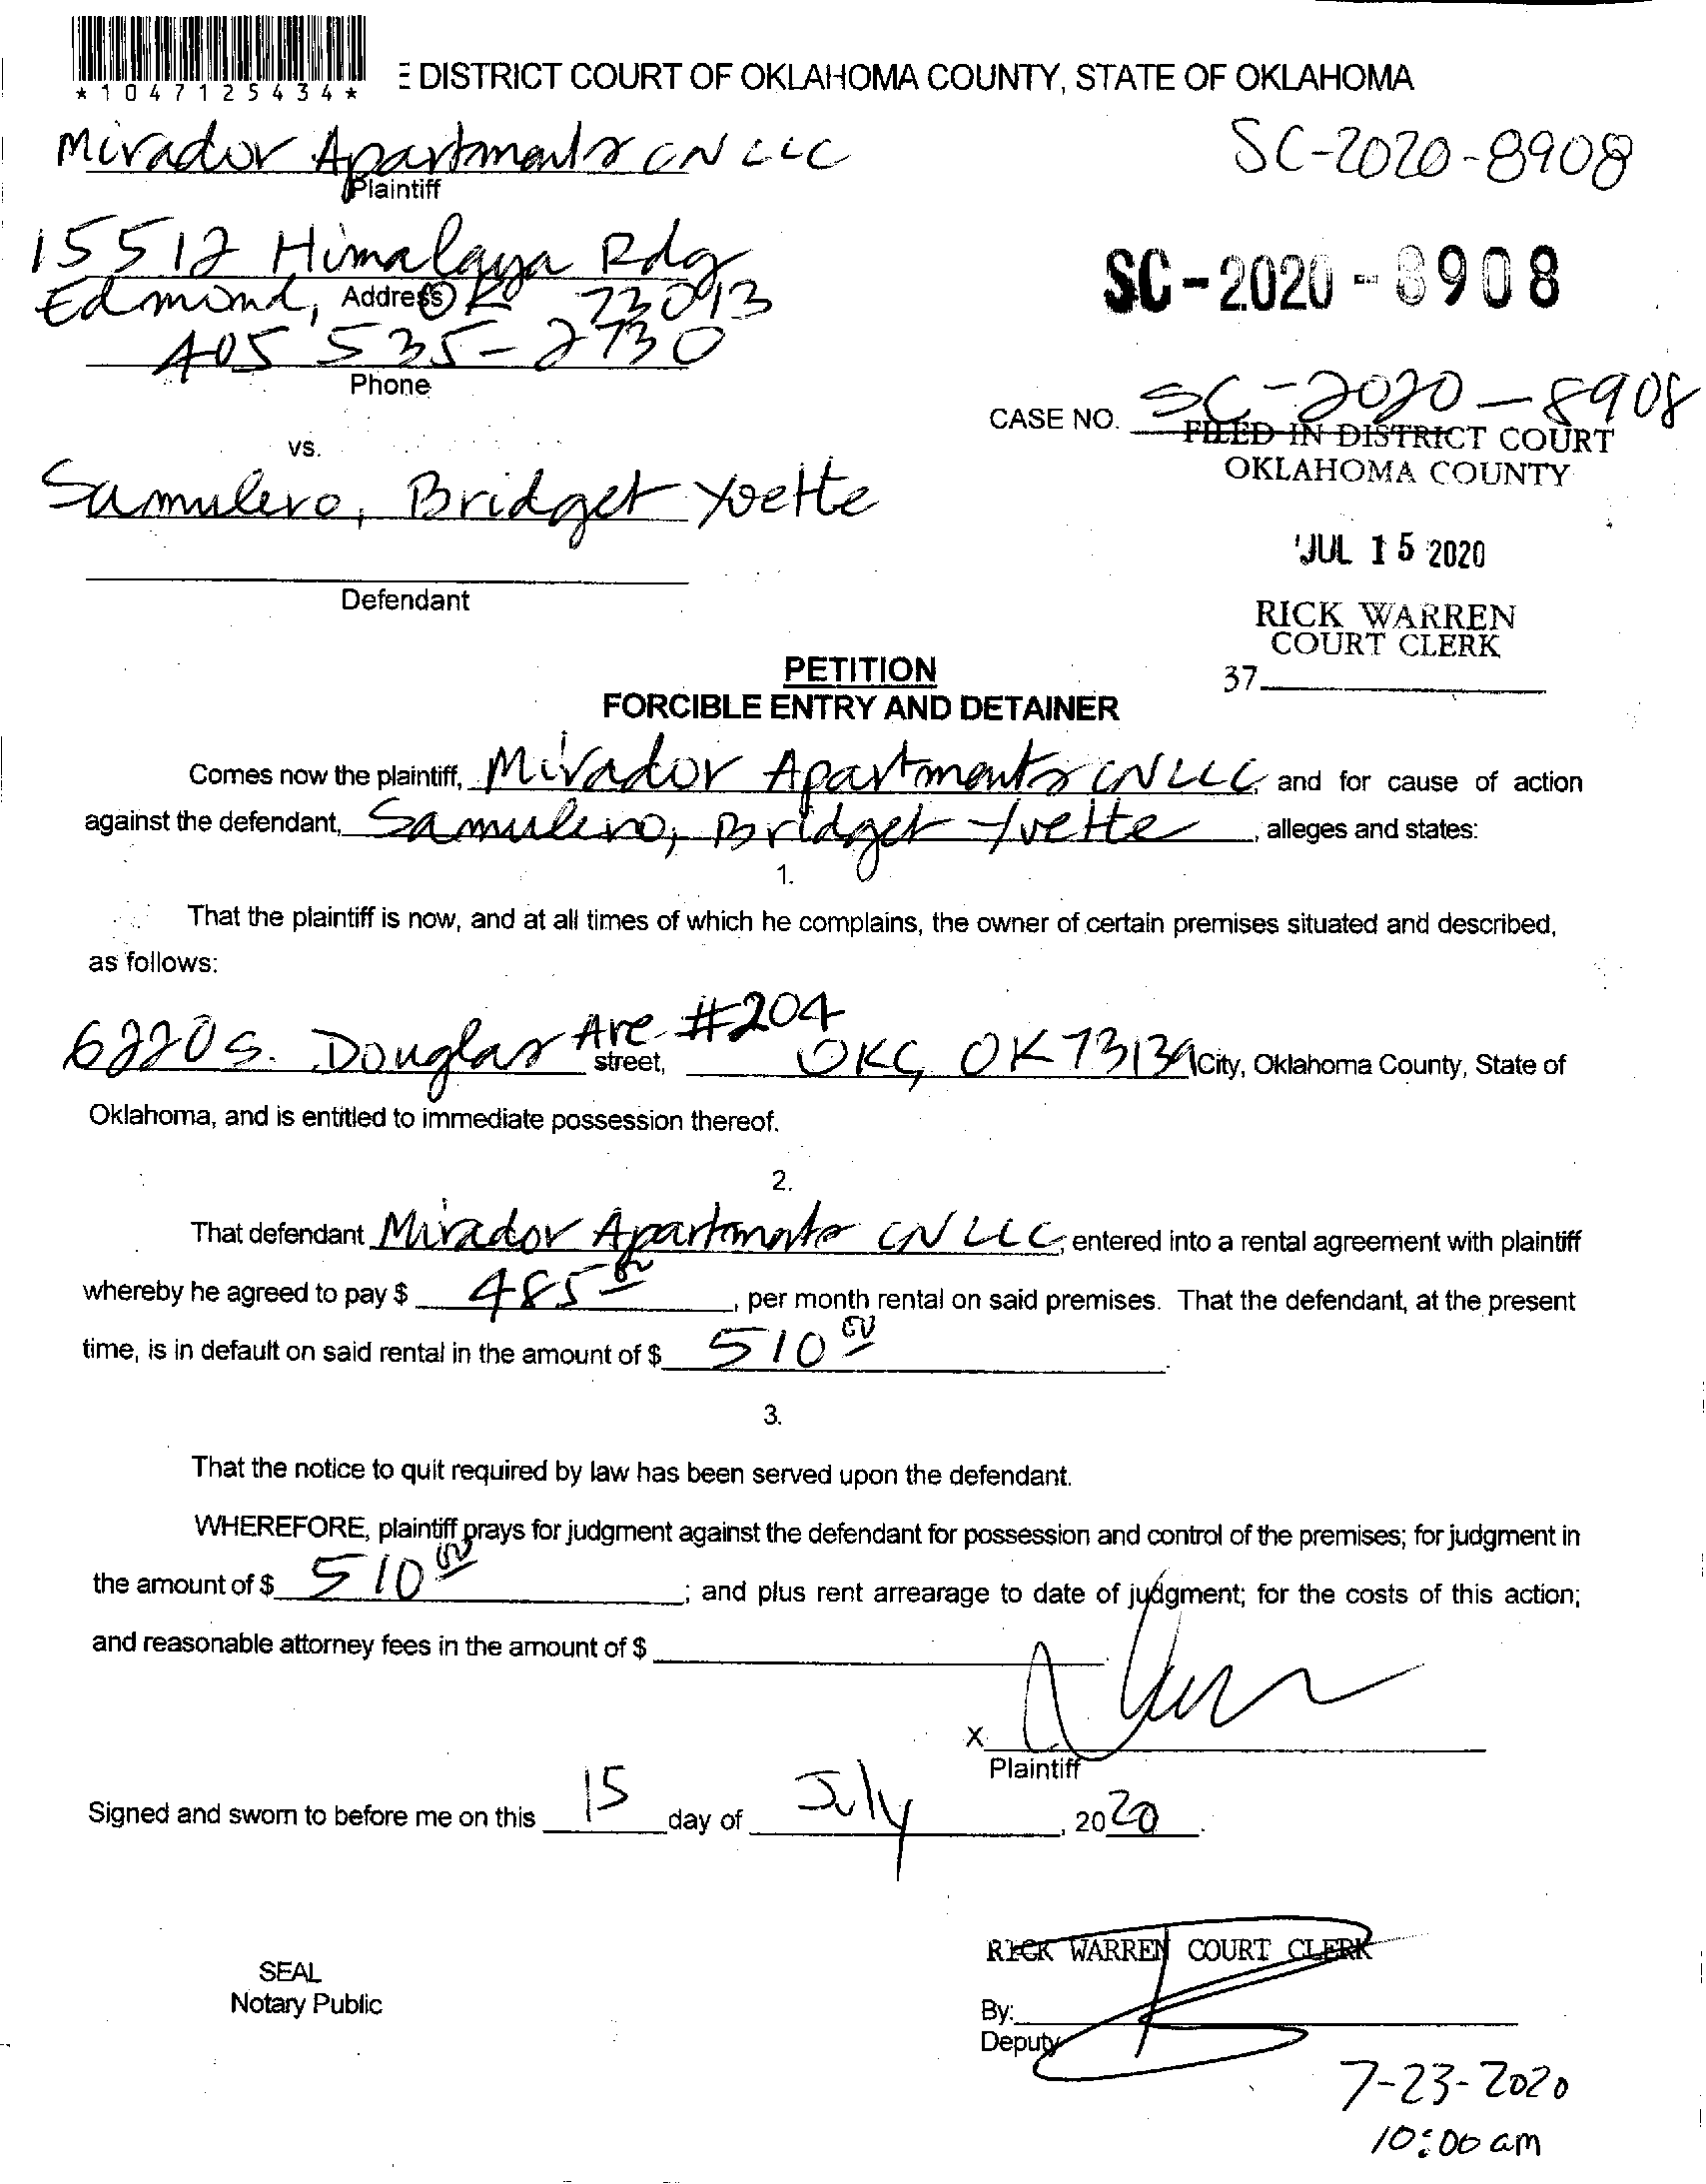 *1047125434*
E DISTRICT COURT OF OKLAHOMA COUNTY, STATE OF OKLAHOMA
Mirador Apartments CN LLC
SC-2020-8908
Plaintiff
15512 Himalaya Rdg
SC-2020-8908
Edmond, OK 73013
Address
405 535-2730
Phone
CASE NO. SC-2020-8908
FILED IN DISTRICT COURT
OKLAHOMA COUNTY
vs.
Samulero, Bridget Yvette
JUL 15 2020
Defendant
RICK WARREN
COURT CLERK
37
PETITION
FORCIBLE ENTRY AND DETAINER
Comes now the plaintiff, Mirador Apartments CN LLC, and for cause of action
against the defendant, Samulero, Bridget Yvette, alleges and states:
1.
That the plaintiff is now, and at all times of which he complains, the owner of certain premises situated and described,
as follows:
6220 S. Douglas Ave #204 street, OKC, OK 73139 City, Oklahoma County, State of
Oklahoma, and is entitled to immediate possession thereof.
2.
That defendant Mirador Apartments CN LLC, entered into a rental agreement with plaintiff
whereby he agreed to pay $ 485 00, per month rental on said premises. That the defendant, at the present
time, is in default on said rental in the amount of $ 510 00.
3.
That the notice to quit required by law has been served upon the defendant.
WHEREFORE, plaintiff prays for judgment against the defendant for possession and control of the premises; for judgment in
the amount of $ 510 00; and plus rent arrearage to date of judgment; for the costs of this action;
and reasonable attorney fees in the amount of $
X
Plaintiff
Signed and sworn to before me on this 15 day of July, 2020.
RICK WARREN COURT CLERK
SEAL
Notary Public
By:
Deputy
7-23-2020
10:00 am